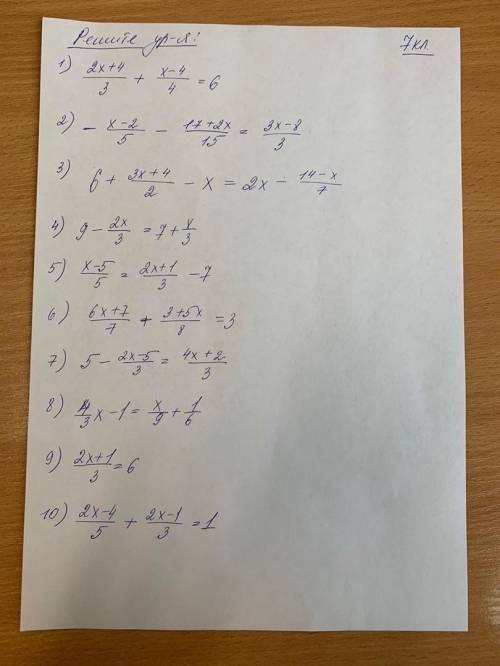 Решите ур-я: 7кл.
1) (2x+4)/3 + (x-4)/4 = 6
2) - (x-2)/5 - (17+2x)/15 = (3x-8)/3
3) 6 + (3x+4)/2 - x = 2x - (14-x)/7
4) 9 - 2x/3 = 7 + x/3
5) (x-5)/5 = (2x+1)/3 - 7
6) (6x+7)/7 + (3+5x)/8 = 3
7) 5 - (2x-5)/3 = (4x+2)/3
8) 4/3 x - 1 = x/9 + 1/6
9) (2x+1)/3 = 6
10) (2x-4)/5 + (2x-1)/3 = 1